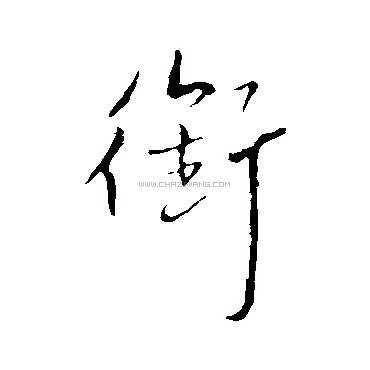 銜
WWW.CHAZIWANG.COM